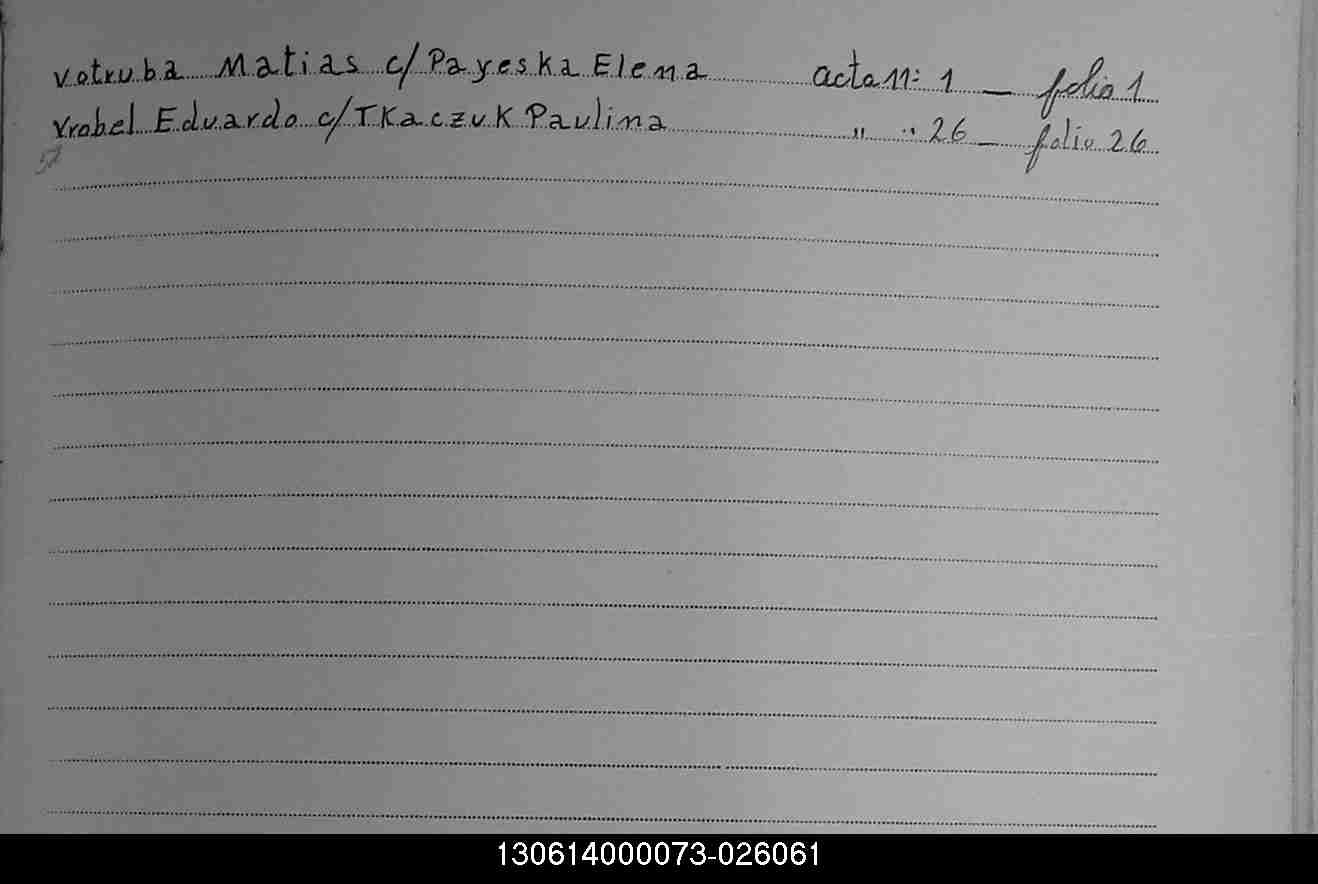 Votruba Matias c/ Payeska Elena acta n: 1 _ folio 1
Vrobel Eduardo c/ Tkaczuk Paulina " " 26 _ folio 26
130614000073-026061